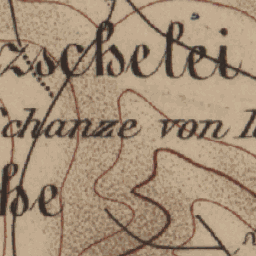 zschelei
chanze von
he